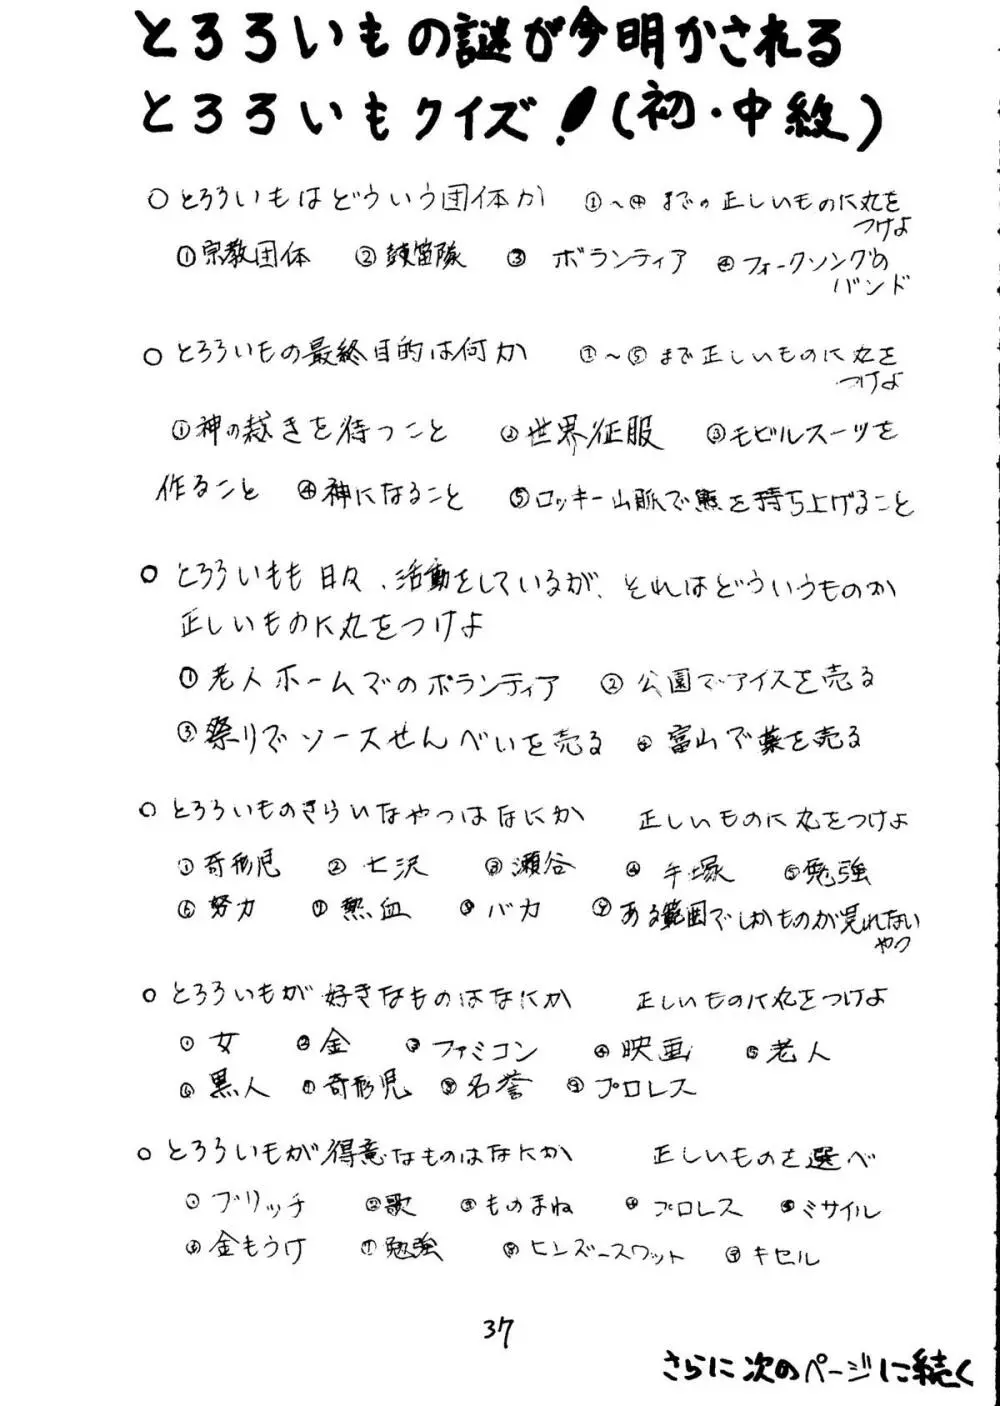 とろろいもの謎が今明かされる
とろろいもクイズ!(初・中級)
○とろろいもはどういう団体か ①〜④までの正しいものに丸を
つけよ
①宗教団体 ②鼓笛隊 ③ボランティア ④フォークソングの
バンド
○とろろいもの最終目的は何か ①〜⑤まで正しいものに丸を
つけよ
①神の裁きを待つこと ②世界征服 ③モビルスーツを
作ること ④神になること ⑤ロッキー山脈で熊を持ち上げること
○とろろいもも日々、活動をしているが、それはどういうものか
正しいものに丸をつけよ
①老人ホームでのボランティア ②公園でアイスを売る
③祭りでソースせんべいを売る ④富山で薬を売る
○とろろいものきらいなやつはなにか 正しいものに丸をつけよ
①奇形児 ②七沢 ③瀬谷 ④手塚 ⑤勉強
⑥努力 ⑦熱血 ⑧バカ ⑨ある範囲でしかものが見れない
やつ
○とろろいもが好きなものはなにか 正しいものに丸をつけよ
①女 ②金 ③ファミコン ④映画 ⑤老人
⑥黒人 ⑦奇形児 ⑧名誉 ⑨プロレス
○とろろいもが得意なものはなにか 正しいものを選べ
①ブリッヂ ②歌 ③ものまね ④プロレス ⑤ミサイル
⑥金もうけ ⑦勉強 ⑧ヒンズースワット ⑨キセル
37
さらに次のページに続く